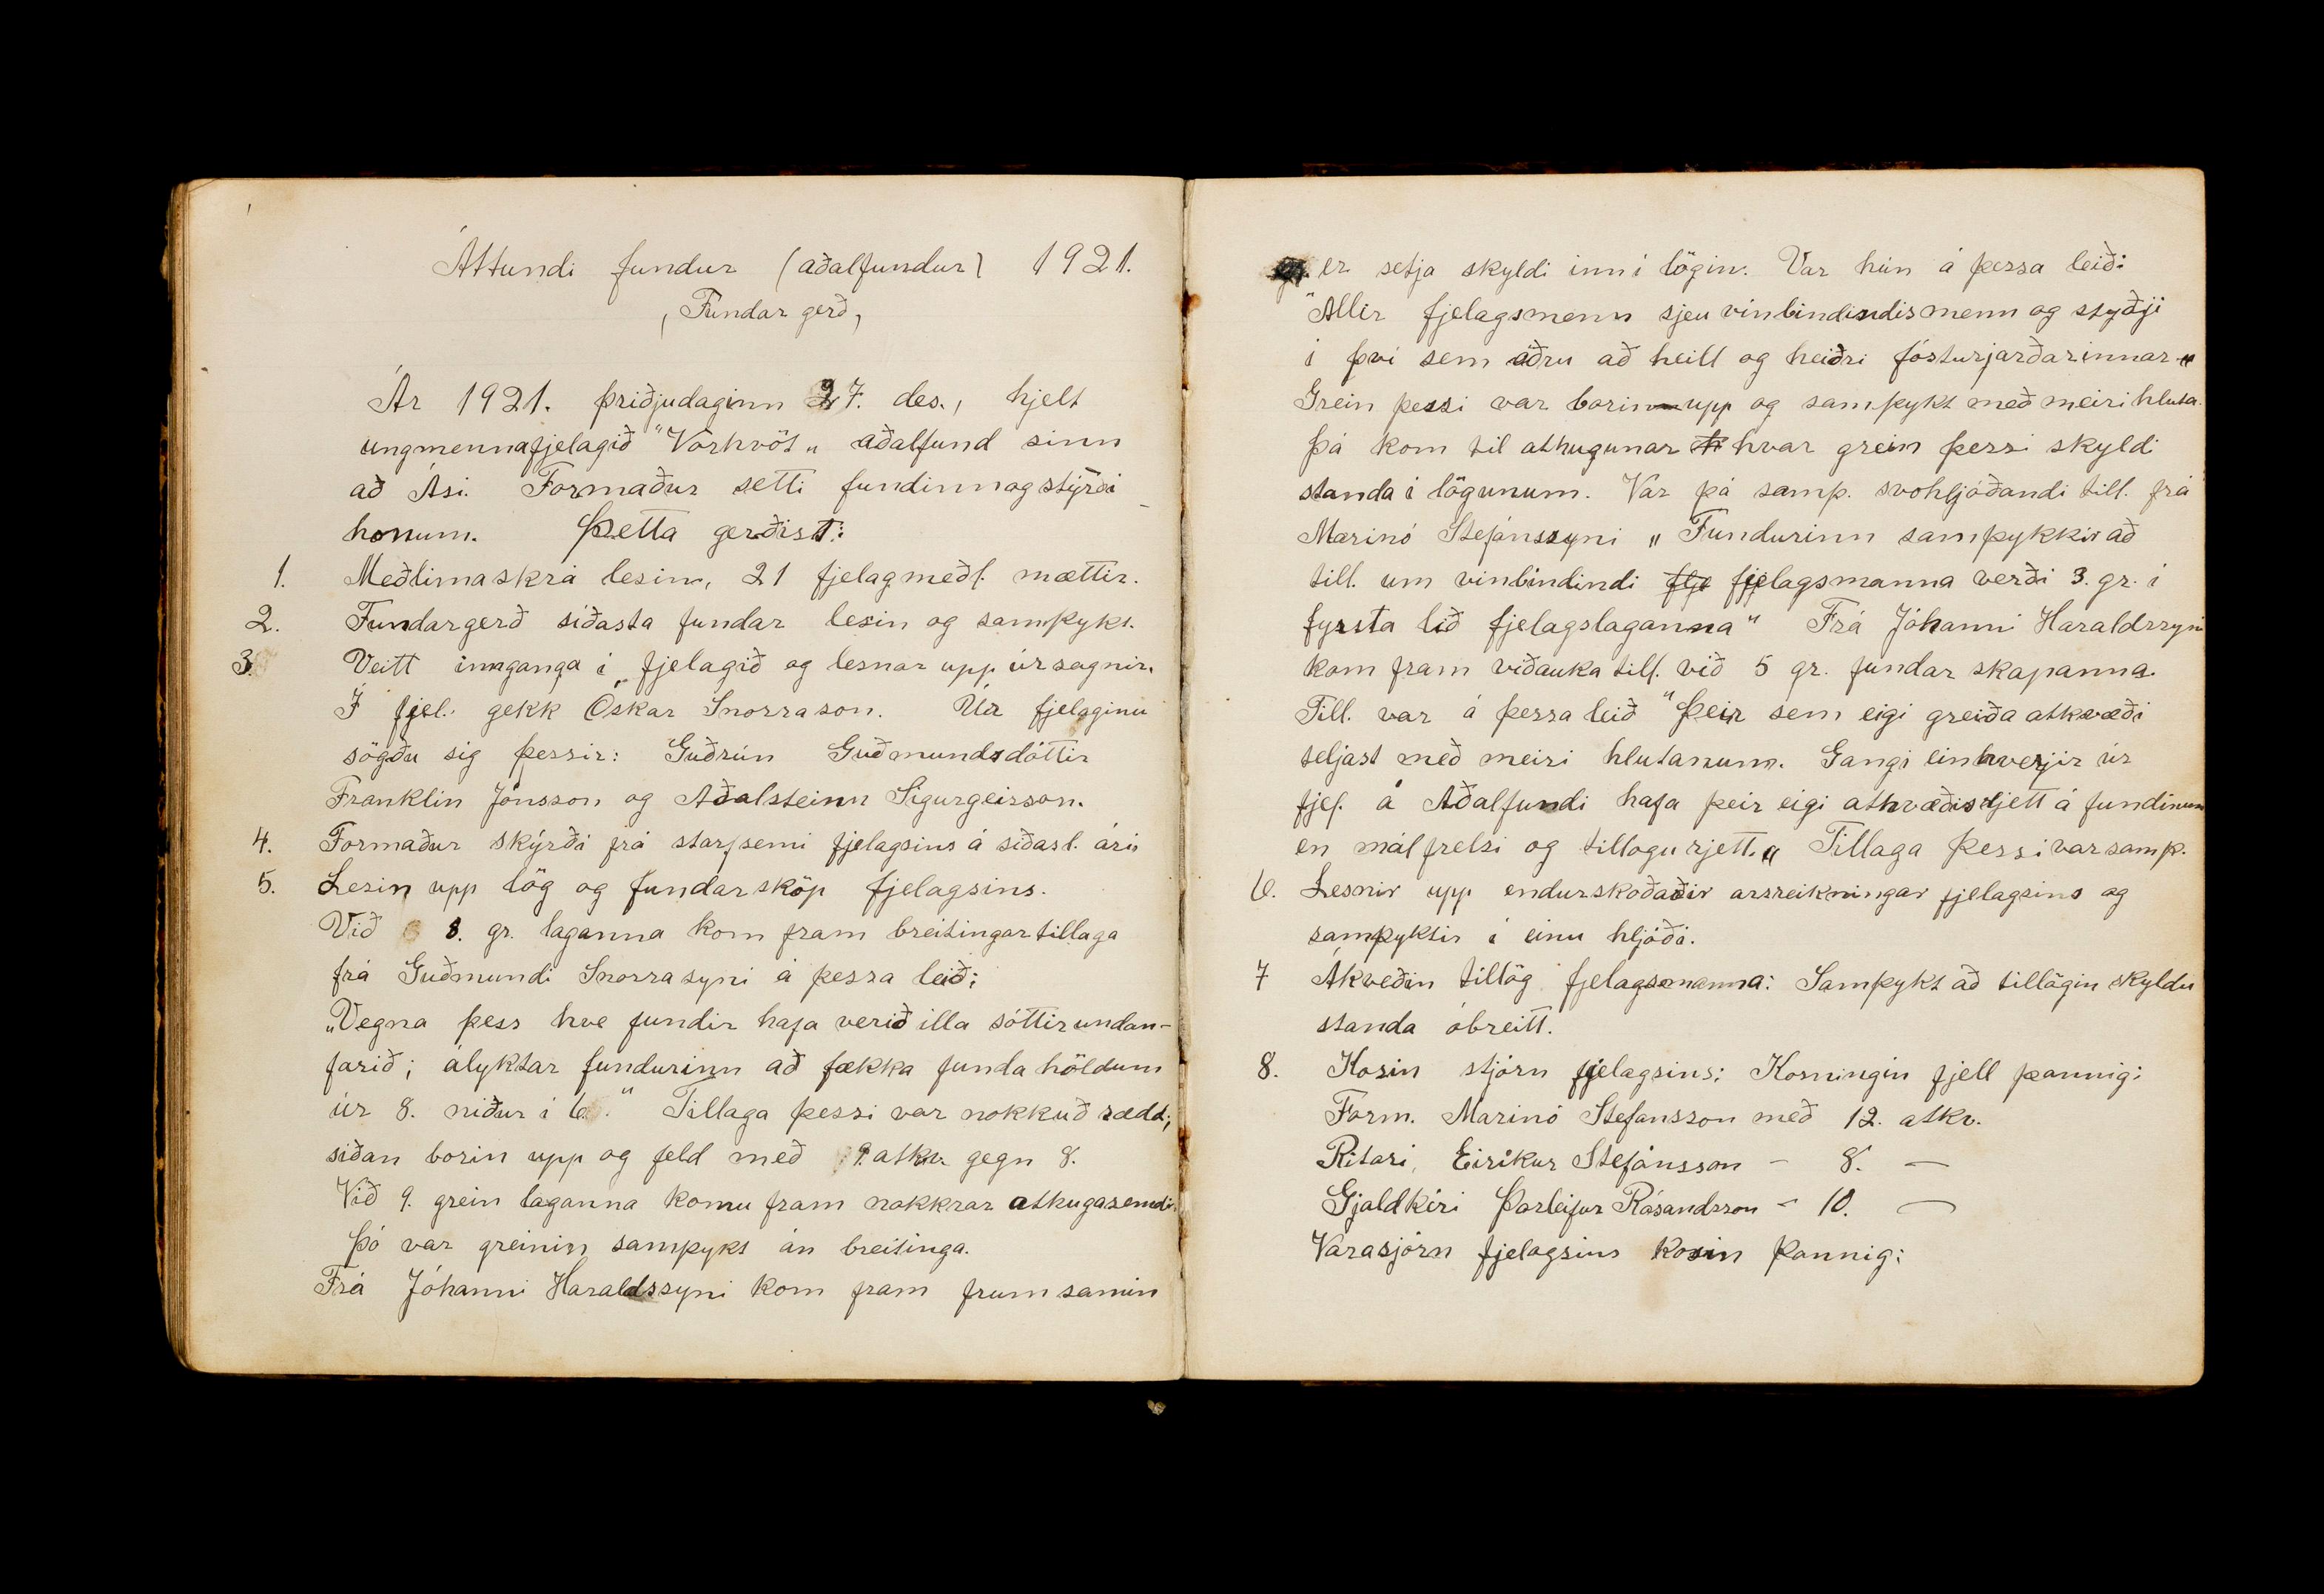 Áttundi fundur (aðalfundur) 1921.
, Fundar gerð,
Ár 1921. þriðjudaginn 27. des., hjelt
ungmennafjelagið "Vorhvöt„ aðalfund sinn
að Ási. Formaður setti fundinn og stýrði
honum. Þetta gerðist:
1. Meðlimaskrá lesin, 21 fjelagmeðl. mættir.
2. Fundargerð síðasta fundar lesin og samþykt.
3. Veitt innganga í fjelagið og lesnar upp úrsagnir.
Í fjel. gekk Óskar Snorrason. Úr fjelaginu
sögðu sig þessir: Guðrún Guðmundsdóttir
Franklín Jónsson og Aðalsteinn Sigurgeirsson.
4. Formaður skýrði frá starfsemi fjelagsins á síðasl. ári.
5. Lesin upp lög og fundarsköp fjelagsins.
Við 8. gr. laganna kom fram breitingartillaga
frá Guðmundi Snorrasyni á þessa leið:
„Vegna þess hve fundir hafa verið illa sóttir undan-
farið; ályktar fundurinn að fækka funda höldum
úr 8. niður í 6." Tillaga þessi var nokkuð rædd;
síðan borin upp og feld með 9. atkv. gegn 8.
Við 9. grein laganna komu fram nokkrar athugasemdir.
Þó var greinin samþykt án breitinga.
Frá Jóhanni Haraldssyni kom fram frumsamin
er setja skyldi inn í lögin. Var hún á þessa leið:
"Allir fjelagsmenn sjeu vínbindindismenn og styðji
í því sem öðru að heill og heiðri fósturjarðarinnar„
Grein þessi var borin upp og samþykt með meiri hluta.
Þá kom til athugunar hvar grein þessi skyldi
standa í lögunum. Var þá samþ. svohljóðandi till. frá
Marinó Stefánssyni „Fundurinn samþykkir að
till. um vinbindindi fjelagsmanna verði 3. gr. í
fyrsta lið fjelagslaganna" Frá Jóhanni Haraldssyni
kom fram viðauka till. við 5 gr. fundar skapanna.
Till. var á þessa leið "Þeir sem eigi greiða atkvæði
teljast með meiri hlutanum. Gangi einhverjir úr
fjel. á Aðalfundi hafa þeir eigi atkvæðisrjett á fundinum
en málfrelsi og tillogurjett.„ Tillaga þessi var samþ.
6. Lesnir upp endurskoðaðir arsreikningar fjelagsins og
samþyktir í einu hljóði.
7 Ákveðin tillög fjelagsmanna: Samþykt að tillögin skyldu
standa óbreitt.
8. Kosin stjórn fjelagsins: Kosningin fjell þannig:
Form. Marinó Stefansson með 12. atkv.
Ritari, Eiríkur Stefánsson – 8. —
Gjaldkéri Þorleifur Rósandsson – 10. —
Varasjórn fjelagsins kosin þannig: